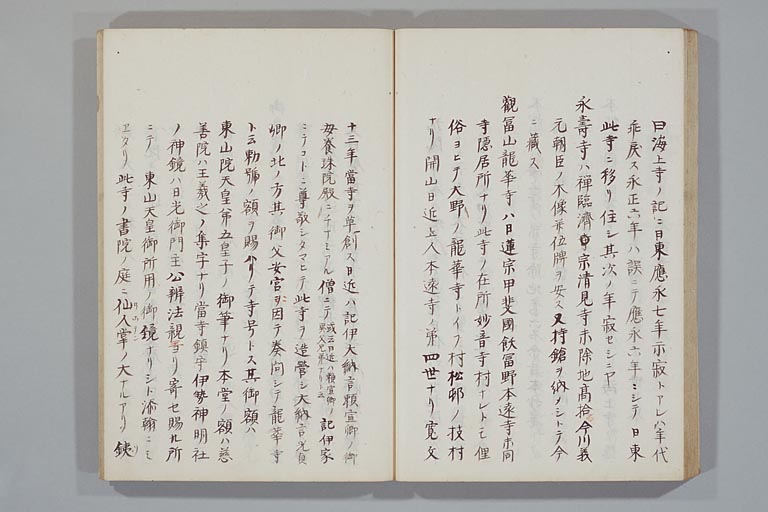 曰海上寺ノ記ニ日東應永七年示寂トアレハ年代
乖戻ス永正六年ハ誤ニテ應永六年ニシテ日東
此寺ニ移リ住シ其次ノ年寂セシニヤ
永壽寺ハ禅臨濟宗清見寺末除地高拾今川義
元朝臣ノ木像并位牌ヲ安ス又持鎗ヲ納メシトテ今
ニ藏ス
觀冨山龍華寺ハ日蓮宗甲斐國飯冨野本遠寺末同
寺隠居所ナリ此寺ノ在所妙音寺村ナレトモ俚
俗ヨビテ大野ノ龍華寺トイフ村松邨ノ枝村
ナリ開山日近上人本遠寺ノ第四世ナリ寛文
十三年當寺ヲ草創ス日近ハ記伊大納言頼宣卿ノ御
母養珠院殿ニチナミアル僧ニテ或云日近ハ頼宣卿ノ異父兄弟ナリト云記伊家
ニテコトニ尊敬シタマヒテ此寺ヲ造營シ大納言光貞
卿ノ北ノ方其御父安宮ヲ因テ奏向シテ龍華寺
ト云勅號ノ額ヲ賜ハリテ寺号トス其御額ハ
東山院天皇第五皇子ノ御筆ナリ本堂ノ額ハ慈
善院ハ王羲之ノ集字ナリ當寺鎮守伊勢神明社
ノ神鏡ハ日光御門主公辨法親王ヨリ寄セ賜ル所
ニテ東山天皇御所用ノ御鏡ナリシト添翰ニミ
エタリ此寺ノ書院ノ庭ニ仙人掌ノ大ナルアリ鐡